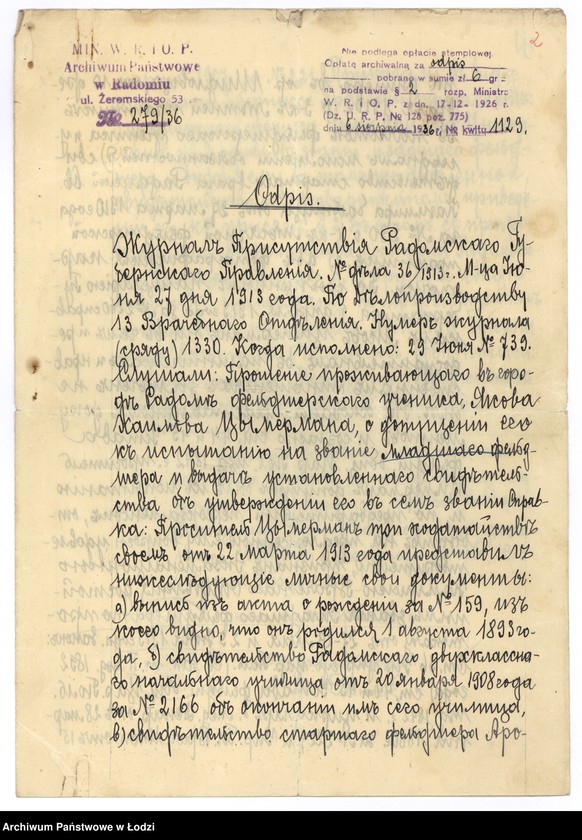 2
MIN. W. R. i O. P.
Archiwum Państwowe
w Radomiu
ul. Żeromskiego 53
№ 279/36
Nie podlega opłacie stemplowej.
Opłatę archiwalną za odpis
pobrano w sumie zł 6 gr -
na podstawie § 2 rozp. Ministr.
W. R. i O. P. z dn. 17-12- 1926 r.
(Dz. U. R. P. № 128 poz. 775)
dnia 6 sierpnia 1936 r. № kwitu 1129.
Odpis.
Журналъ Присутствія Радомскаго Гу-
бернскаго Правленія. № дѣла 36/1813г. М-ца Ію-
ня 27 дня 1913 года. По дѣлопроизводству
13 Врачебнаго Отдѣленія. Нумеръ журнала
(сряду) 1330. Когда исполнено: 29 Іюня № 739.
Слушали: Прошеніе проживающаго въ горо-
дѣ Радомѣ фельдшерскаго ученика, Якова
Хаимова Цымермана, о допущеніи его
къ испытанію на званіе младшаго фельд-
шера и выдачѣ установленнаго свидѣтель-
ства объ утвержденіи его въ семъ званіи Справ-
ка: Проситель Цымерманъ при ходатайствѣ
своемъ отъ 22 марта 1913 года представилъ
нижеслѣдующіе личные свои документы:
а) выпись изъ акта о рожденіи за № 159, изъ
коего видно, что онъ родился 1 августа 1893 го-
да, б) свидѣтельство Радомскаго двухклассна-
го начальнаго училища отъ 20 января 1908 года
за № 2166 объ окончаніи имъ сего училища,
в) свидѣтельство старшаго фельдшера Аро-
Archiwum Państwowe w Łodzi